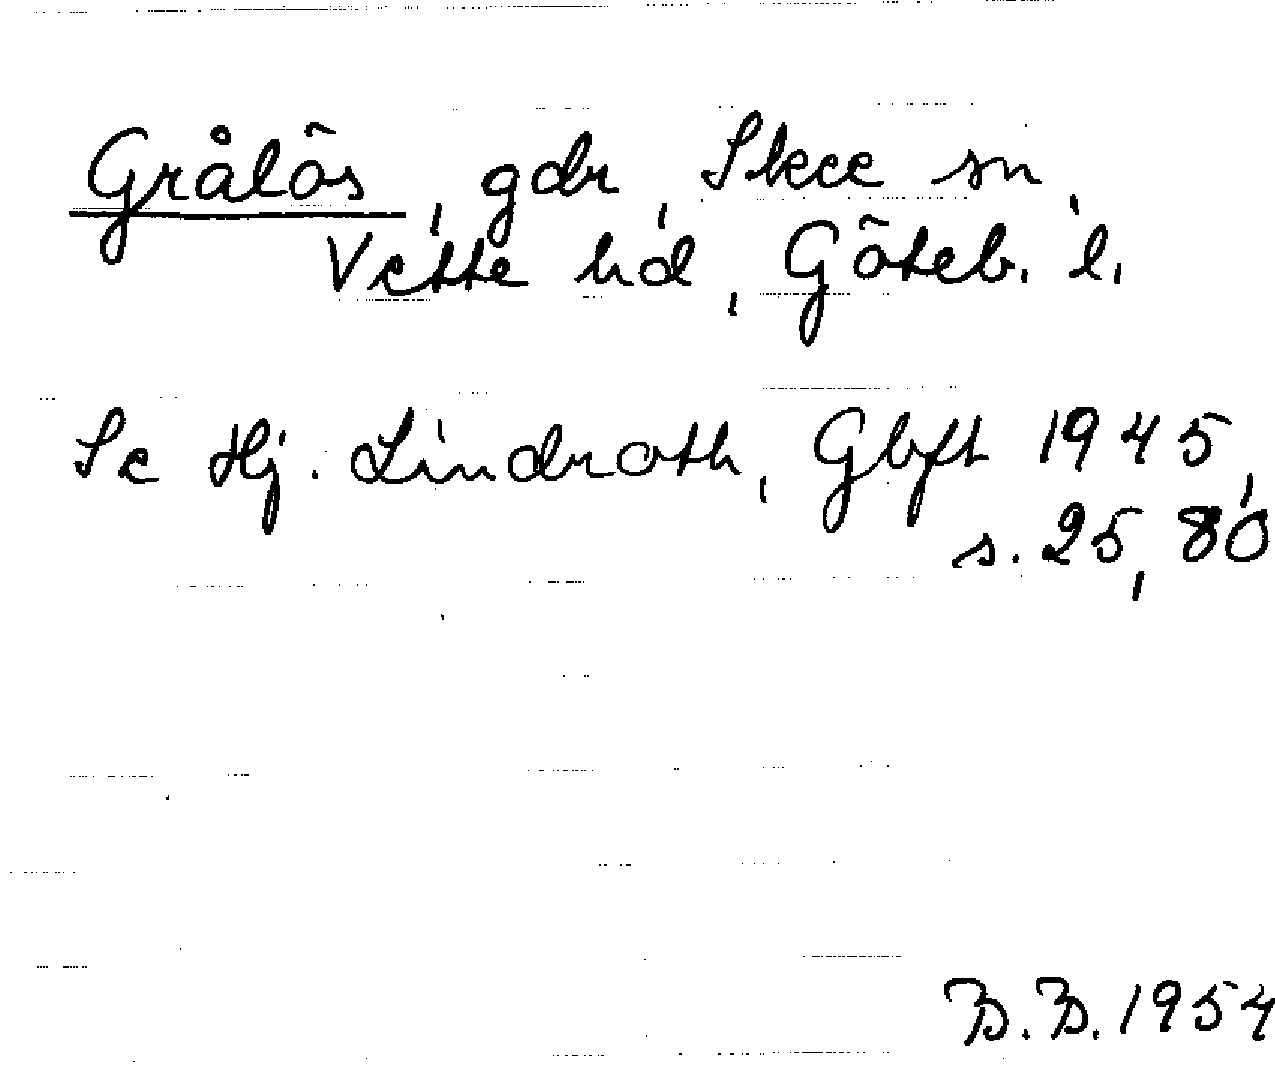 Grålös, gdr, Skee sn,
Vette hd, Göteb. l.
Se Hj. Lindroth, Gbft 1945,
s. 25, 80
B.B. 1954